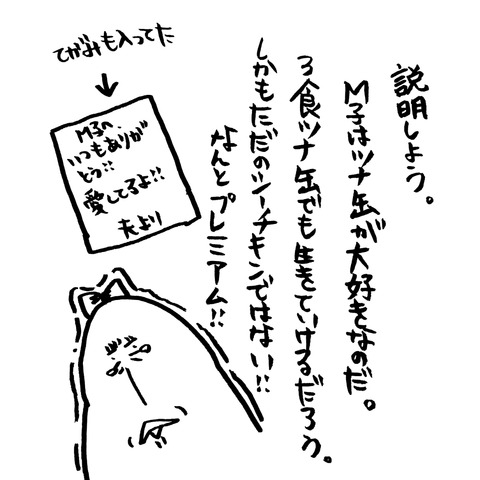 説明しよう。
M子はツナ缶が大好きなのだ。
3食ツナ缶でも生きていけるだろう。
しかもただのシーチキンではない!!
なんとプレミアム!!
てがみも入ってた
M子へ
いつもありが
とう!!
愛してるよ!!
夫より